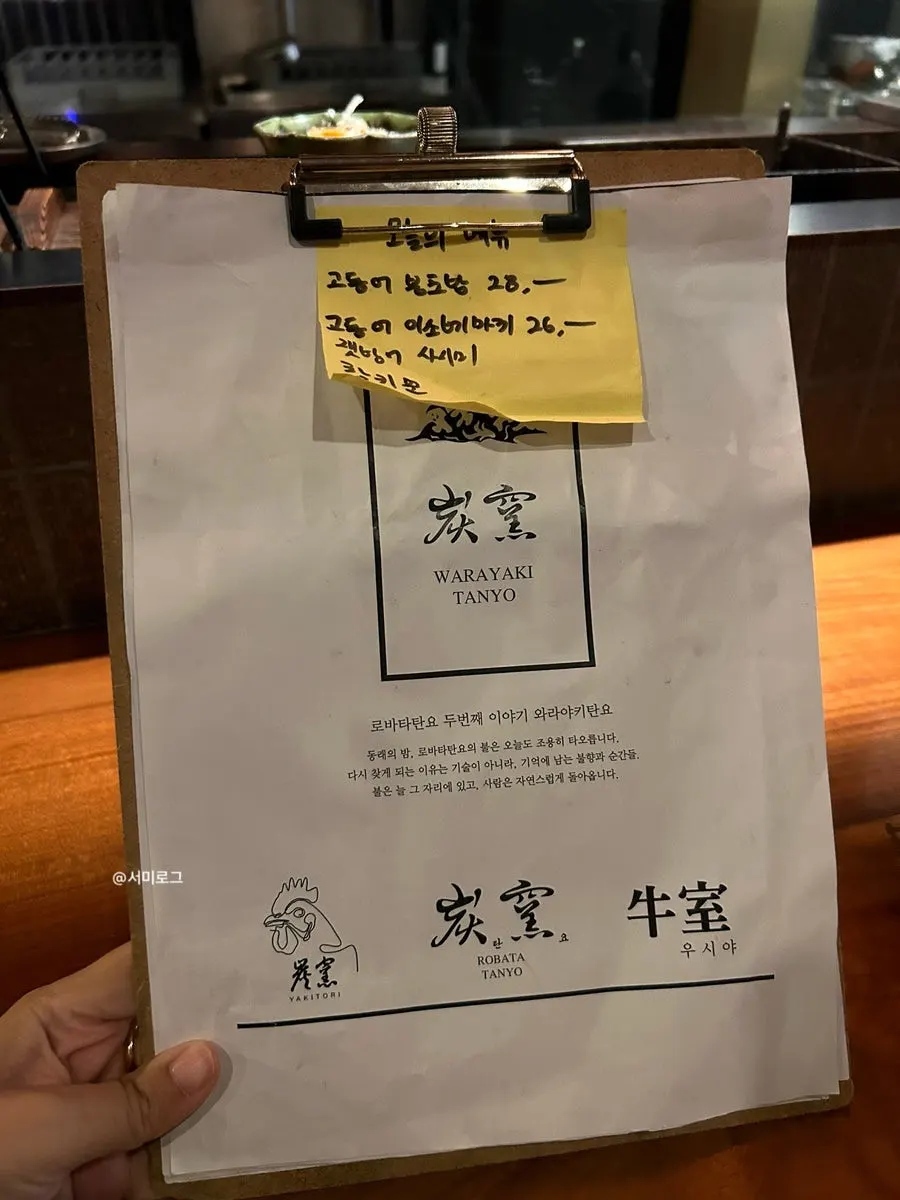 오늘의 메뉴
고등어 봉초밥 28,—
고등어 이소베마키 26,—
갯방어 사시미
炭窯
WARAYAKI
TANYO
로바타탄요 두번째 이야기 와라야키탄요
동래의 밤, 로바타탄요의 불은 오늘도 조용히 타오릅니다.
다시 찾게 되는 이유는 기술이 아니라, 기억에 남는 불향과 순간들.
불은 늘 그 자리에 있고, 사람은 자연스럽게 돌아옵니다.
@서미로그
炭窯
YAKITORI
炭탄窯요
ROBATA
TANYO
牛室
우시야